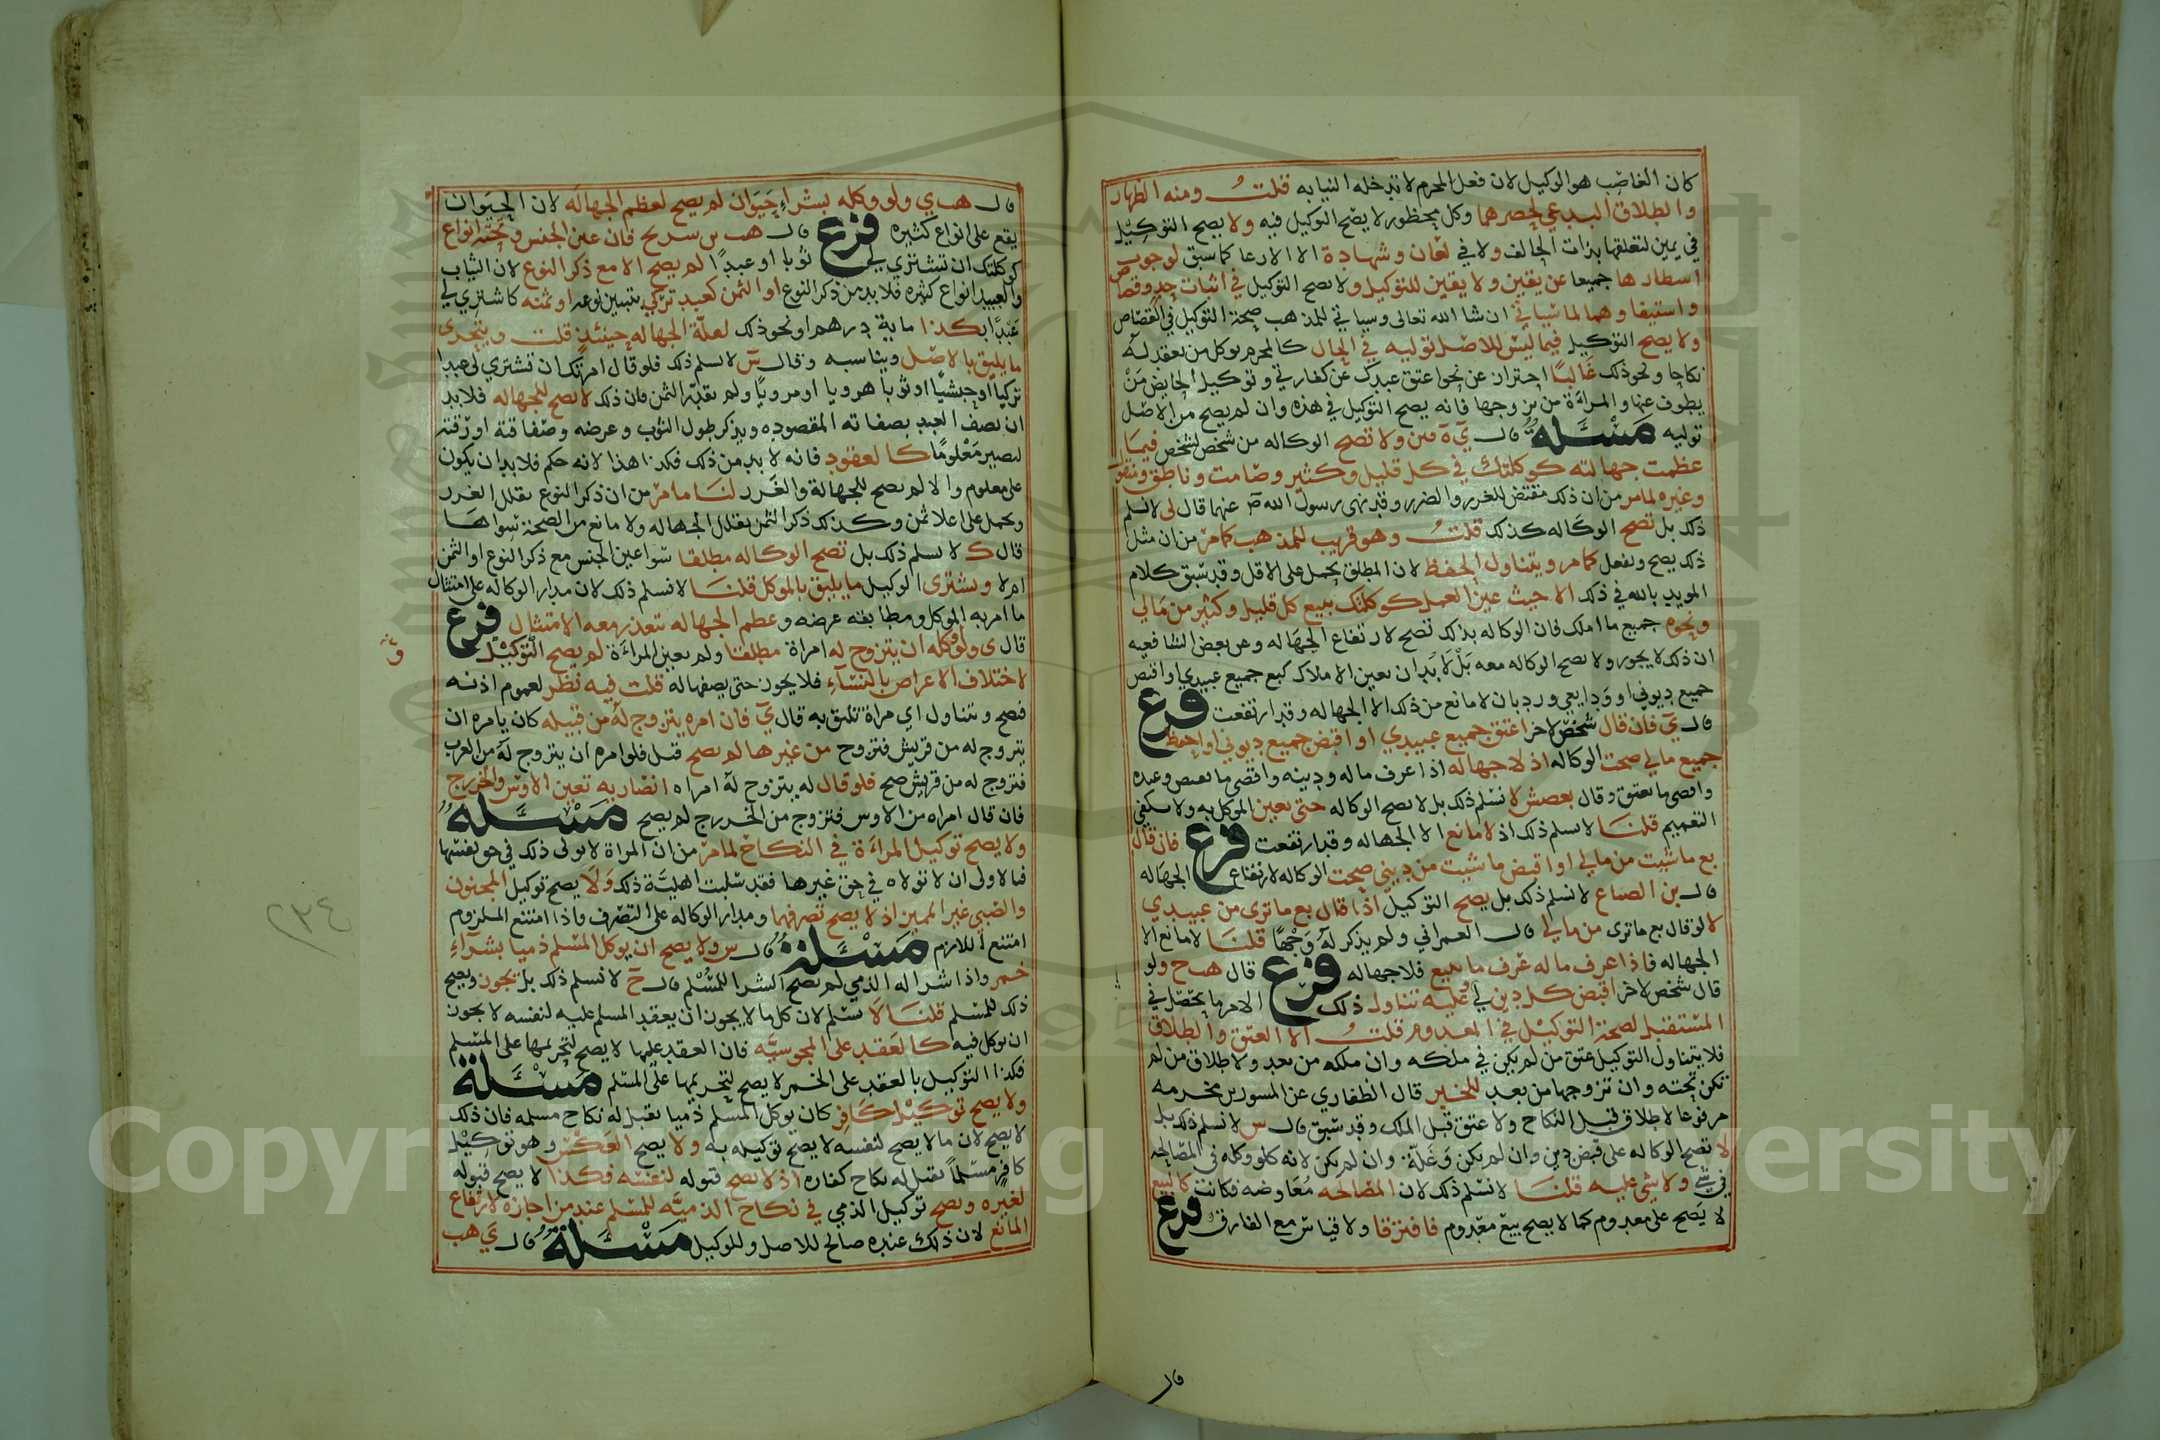 كان الغاصب هو الوكيل لان فعل المحرم لا تدخله النيابه قلت ومنه الظهار
والطلاق البدعي لحصرهما وكل محظور لا يصح التوكيل فيه ولا يصح التوكيل
في يمين لتعلقها بذات الحالف ولا في لعان وشهادة الا الارعا كما سبق لوجوب
اسطادها جميعا عن يقين ولا يقين للتوكيل ولا يصح التوكيل في اثبات حد وقصاص
واستيفاوهما لما سياتي ان شا الله تعالى وسياتي للمذهب صحة التوكيل في القصاص
ولا يصح التوكيل فيما ليس للاصل توليه في الحال كالمحرم يوكل من يعقد له
نكاحا ونحو ذلك غالبا احتراز عن نحو اعتق عبدك عن كفارتي وتوكيل الحايض من
يطوف عنها والمراة من يزوجها فانه يصح التوكيل في هذه وان لم يصح من الاصل
توليه مسئله قال ولا تصح الوكاله من شخص لشخص فيما
عظمت جهالته كوكلتك في كل قليل وكثير وصامت وناطق
وغيره لما مر من ان ذلك مقتض للغرر والضرر وقد نهى رسول الله عنهما قال لى لا نسلم
ذلك بل تصح الوكاله كذلك قلت وهو قريب للمذهب كما مر من ان مثل
ذلك يصح ويفعل كما مر ويتناول الحفظ لان المطلق يحمل على الاقل وقد سبق كلام
المويد بالله في ذلك الا حيث عين العمل كوكلتك ببيع كل قليل وكثير من مالي
ونحوه جميع ما املك فان الوكاله بذلك تصح لارتفاع الجهاله وعن بعض الشافعيه
ان ذلك لا يجوز ولا تصح الوكاله معه بل لا بد ان يعين الاملاك كبع جميع عبيدي او اقبض
جميع ديوني او ودايعي ورد بان لا مانع من ذلك الا الجهاله وقد ارتفعت فرع
قال ي فان قال شخص لاخر اعتق جميع عبيدي او اقبض جميع ديوني او احفظ
جميع مالي صحت الوكاله اذ لا جهاله اذا عرف ماله ودينه واقصى ما يقبض وعبده
واقصى ما يعتق وقال بعصش لا نسلم ذلك بل لا تصح الوكاله حتى يعين الموكل به ولا يكفي
التعميم قلنا لا نسلم ذلك اذ لا مانع الا الجهاله وقد ارتفعت فرع فان قال
بع ما شيت من مالي او اقبض ما شيت من ديني صحت الوكاله لارتفاع الجهاله
قال بن الصباع لا نسلم ذلك بل يصح التوكيل اذا قال بع ما ترى من عبيدي
لا لو قال بع ما ترى من مالي قال العمراني ولم يذكر له وجها قلنا لا مانع الا
الجهاله فاذا عرف ماله عرف ما يبيع فلا جهاله فرع قال هب ح ولو
قال شخص لاخر اقبض كل دين لي وعليه تناول ذلك الامر ما يحصل في
المستقبل لصحة التوكيل في المعدوم قلت الا العتق والطلاق
فلا يتناول التوكيل عتق من لم يكن في ملكه وان ملكه من بعد ولا طلاق من لم
تكن تحته وان تزوجها من بعد للخبر قال الظفاري عن المسور بن مخرمه
مرفوعا لا طلاق قبل النكاح ولا عتق قبل الملك وقد سبق قال س لا نسلم ذلك بل
لا تصح الوكاله على قبض دين وان لم يكن وغلة وان لم يكن لانه كلو وكله في المصالحه
في شي ولا شي عليه قلنا لا نسلم ذلك لان المصالحه معاوضه فكانت كالبيع
لا يصح على معدوم كما لا يصح بيع معدوم فافترقا ولا قياس مع الفارق فرع
قال
قال هب ي ولو وكله بشراء حيوان لم يصح لعظم الجهاله لان الحيوان
يقع على انواع كثيره فرع قال هب بن سريح فان عين الجنس وتحته انواع
كوكلتك ان تشتري لي ثوبا او عبدا لم يصح الا مع ذكر النوع لان الثياب
والعبيد انواع كثيره فلا بد من ذكر النوع او الثمن كعبد تركي بتبيين نوعه او ثمنه كاشتري لي
عبدا بكذا ماية درهم او نحو ذلك لعلة الجهاله حينئذ قلت ويتحرى
ما يليق بالاصل ويناسبه وقال س لا نسلم ذلك فلو قال امرتك ان تشتري لي عبدا
تركيا او حبشيا او ثوبا هرويا او مرويا ولم يقدر الثمن فان ذلك لا يصح للجهاله فلا بد
ان يصف العبد بصفاته المقصوده ويذكر طول الثوب وعرضه وصفاقته او رقته
ليصير معلوما كالعقود فانه لا بد من ذلك فكذا هذا لانه حكم فلا بد ان يكون
على معلوم والا لم يصح للجهالة والغرر لنا ما مر من ان ذكر النوع يقلل الغرر
ويحمل على اعلا ثمن وكذلك ذكر الثمن يقلل الجهاله ولا مانع من الصحة سواها
قال ك لا نسلم ذلك بل تصح الوكاله مطلقا سوا عين الجنس مع ذكر النوع او الثمن
ام لا ويشتري الوكيل ما يليق بالموكل قلنا لا نسلم ذلك لان مدار الوكاله على امتثال
ما امر به الموكل ومطابقه غرضه وعظم الجهاله يتعذر معه الامتثال فرع
قال ى ولو وكله ان يتزوج له امراة مطلقا ولم يعين المراة لم يصح التوكيل
لاختلاف الاعراض بالنساء فلا يجوز حتى يصفها له قلت فيه نظر لعموم اذنه
فصح ويتناول اي مراة تليق به قال ي فان امره يتزوج له من قبيله كان يامره ان
يتزوج له من قريش فتزوج من غيرها لم يصح قبل فلو امره ان يتزوج له من العرب
فتزوج له من قريش صح فلو قال له يتزوج له امراه انصاريه تعين الاوس والخزرج
فان قال امراه من الاوس فتزوج من الخزرج لم يصح مسئله
ولا يصح توكيل المراة في النكاح لما مر من ان المراة لا تولى ذلك في حق نفسها
فبالاولى ان لا تولاه في حق غيرها فقد سلبت اهلية ذلك ولا يصح توكيل المجنون
والصبي غير المميز اذ لا يصح تصرفهما ومدار الوكاله على التصرف واذا امتنع الملزوم
امتنع اللازم مسئلة قال س ولا يصح ان يوكل المسلم ذميا بشراء
خمر واذا شراه له الذمي لم يصح الشرا للمسلم قال ح لا نسلم ذلك بل يجوز ويصح
ذلك للمسلم قلنا لا نسلم لان كل ما لا يجوز ان يعقد المسلم عليه لنفسه لا يجوز
ان يوكل فيه كالعقد على المجوسيه فان العقد عليها لا يصح لتحريمها على المسلم
فكذا التوكيل بالعقد على الخمر لا يصح لتحريمها على المسلم مسئلة
ولا يصح توكيل كافر كان يوكل المسلم ذميا يقبل له نكاح مسلمه فان ذلك
لا يصح لان ما لا يصح لنفسه لا يصح توكيله به ولا يصح العكس وهو توكيل
كافر مسلما يقبل له نكاح كفاره اذ لا يصح قبوله لنفسه فكذا لا يصح قبوله
لغيره ويصح توكيل الذمي في نكاح الذميه للمسلم عند من اجازه لارتفاع
المانع لان ذلك عنده صالح للاصل وللوكيل مسئلة قال ي هب
٢٣٤
Copyright © King Saud University